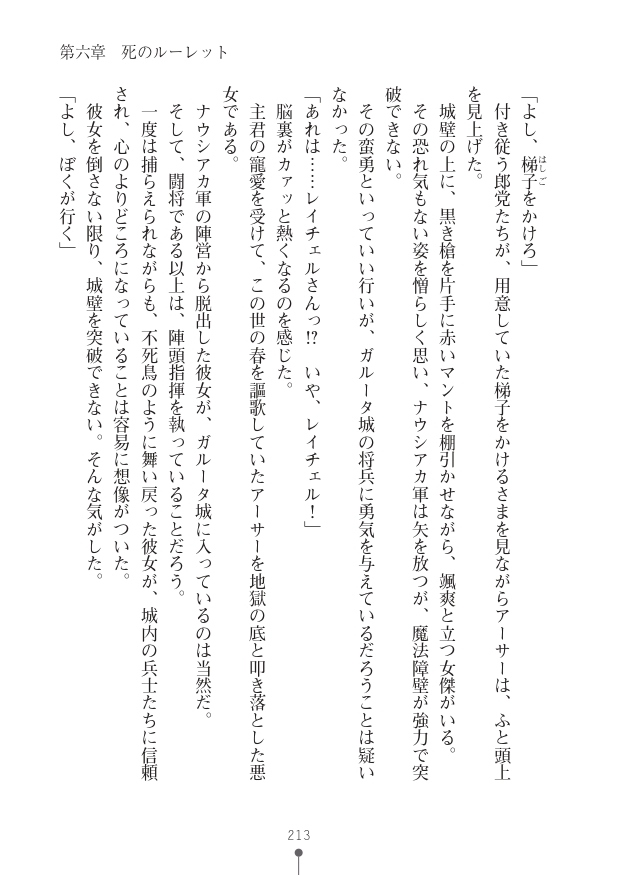 第六章　死のルーレット
「よし、梯子をかけろ」
　付き従う郎党たちが、用意していた梯子をかけるさまを見ながらアーサーは、ふと頭上
を見上げた。
　城壁の上に、黒き槍を片手に赤いマントを棚引かせながら、颯爽と立つ女傑がいる。
　その恐れ気もない姿を憎らしく思い、ナウシアカ軍は矢を放つが、魔法障壁が強力で突
破できない。
　その蛮勇といっていい行いが、ガルータ城の将兵に勇気を与えているだろうことは疑い
なかった。
「あれは……レイチェルさんっ!?　いや、レイチェル！」
　脳裏がカァッと熱くなるのを感じた。
　主君の寵愛を受けて、この世の春を謳歌していたアーサーを地獄の底と叩き落とした悪
女である。
　ナウシアカ軍の陣営から脱出した彼女が、ガルータ城に入っているのは当然だ。
　そして、闘将である以上は、陣頭指揮を執っていることだろう。
　一度は捕らえられながらも、不死鳥のように舞い戻った彼女が、城内の兵士たちに信頼
され、心のよりどころになっていることは容易に想像がついた。
　彼女を倒さない限り、城壁を突破できない。そんな気がした。
「よし、ぼくが行く」
はしご
213